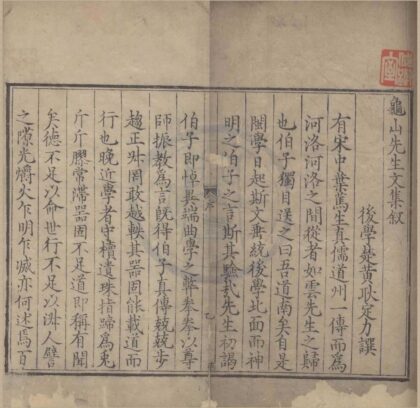 龜山先生文集叙
後學楚黃耿定力譔
有宋中葉篤生真儒道州一傳而爲
河洛河洛之間從者如雲先生之歸
也伯子獨目送之曰吾道南矣自是
閩學日起斯文再統後學北面而神
明之伯子之言斯其驗哉先生初謁
伯子即悼異端曲學之弊拳拳以尊
師振教爲言既得伯子真傳兢兢步
趨正叔罔敢越軼其器固能載道而
行也晚近學者守櫝遺珠指蹄爲兔
斤斤膠常滯器固不足道即稱有聞
矣德不足以命世行不足以淑人譬
之隙光爝火乍明乍滅亦何述焉百